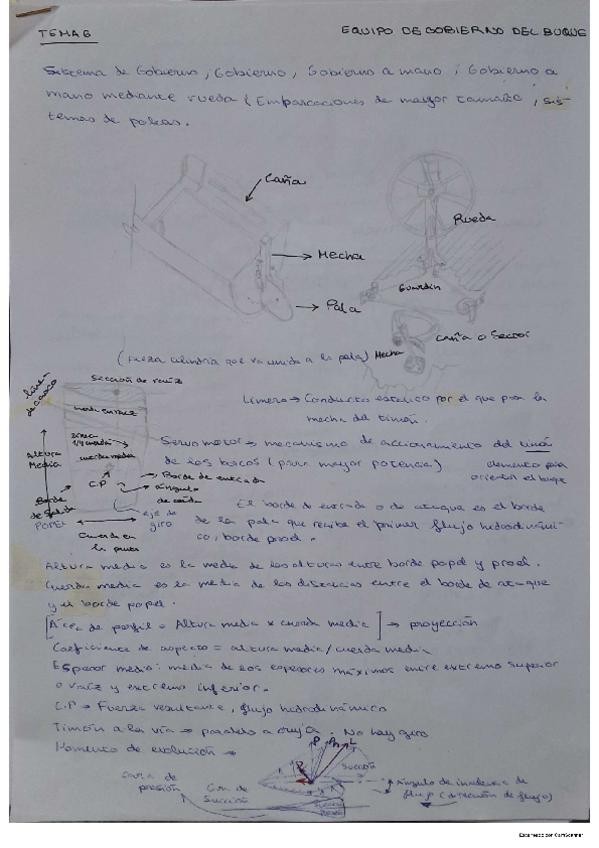 TEMA 6
EQUIPO DE GOBIERNO DEL BUQUE
Sistema de Gobierno, Gobierno, Gobierno a mano, Gobierno a
mano mediante rueda (Embarcaciones de mayor tamaño, sis-
temas de poleas.
Caña
Rueda
Mecha
Guardín
Pala
Caña o Sector
(Pieza cilíndrica que va unida a la pala) Mecha
Línea
de casco
Sección de raíz
Limera → Conducto por el que pasa la
mecha del timón.
Altura
Media
cuerda media
Servomotor → mecanismo de accionamiento del timón
de los barcos (para mayor potencia)
elemento para
orientar el buque
C.P
Borde de entrada
ángulo
de caída
Borde
de Salida
POPEL
eje de
giro
Cuerda en
El borde de entrada o de ataque es el borde
de la pala que recibe el primer flujo hidrodinámi-
co, borde proel.
Altura media es la media de las alturas entre borde popel y proel.
Cuerda media es la media de las distancias entre el borde de ataque
y el borde popel.
[Área de perfil = Altura media x cuerda media] → proyección
Coeficiente de aspecto = altura media/cuerda media
Espesor medio: media de los espesores máximos entre extremo superior
o raíz y extremo inferior.
C.P → Fuerza resultante, flujo hidrodinámico
Timón a la vía → paralelo a crujía. No hay giro
Momento de evolución →
P
Pn
L
Succión
Cara de
presión
Cara de
Succión
Ángulo de incidencia de
flujo (dirección de flujo)
Escaneado con CamScanner